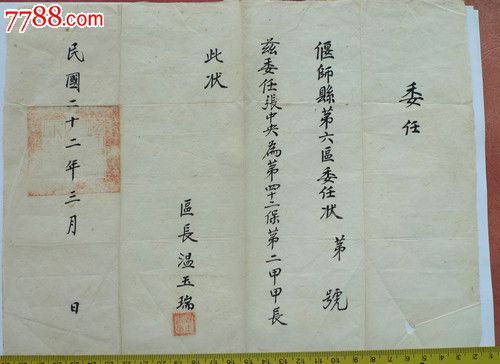 7788.com
委任
偃師縣第六區委任状 第 號
兹委任張中央為第四十二保第二甲甲長
此状
區長 温玉瑞
民國二十二年三月 日
7788.com